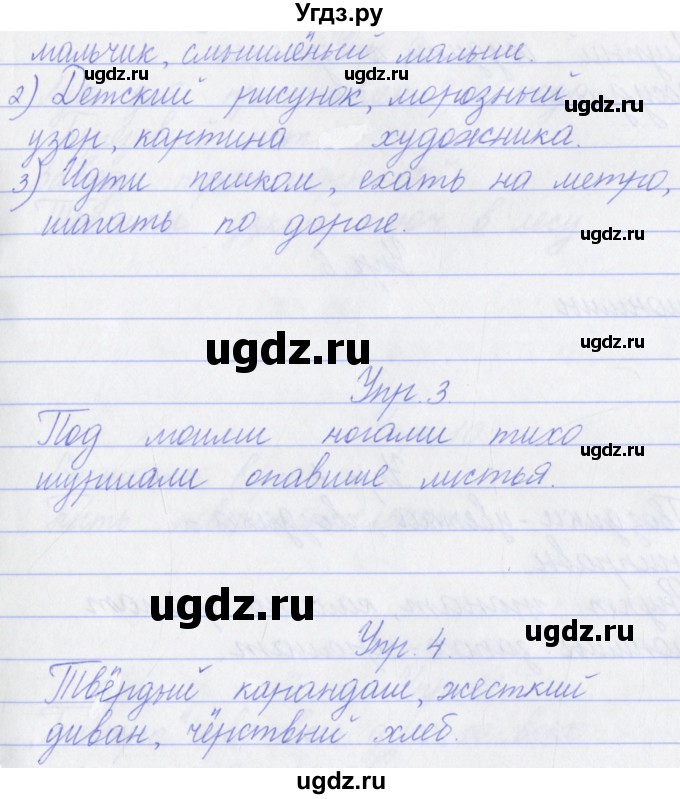 Угдз.ру
мальчик, смышлёный малыш.
ugdz.ru
ugdz.ru
2) Детский рисунок, морозный
ugdz.ru
узор, картина художника.
ugdz.ru
3) Идти пешком, ехать на метро,
шагать по дороге.
ugdz.ru
ugdz.ru
ugdz.ru
Упр. 3.
Под моими ногами тихо
шуршали опавшие листья.
ugdz.ru
ugdz.ru
ugdz.ru
Упр. 4.
Твёрдый карандаш, жесткий
диван, чёрствый хлеб.
ugdz.ru
ugdz.ru